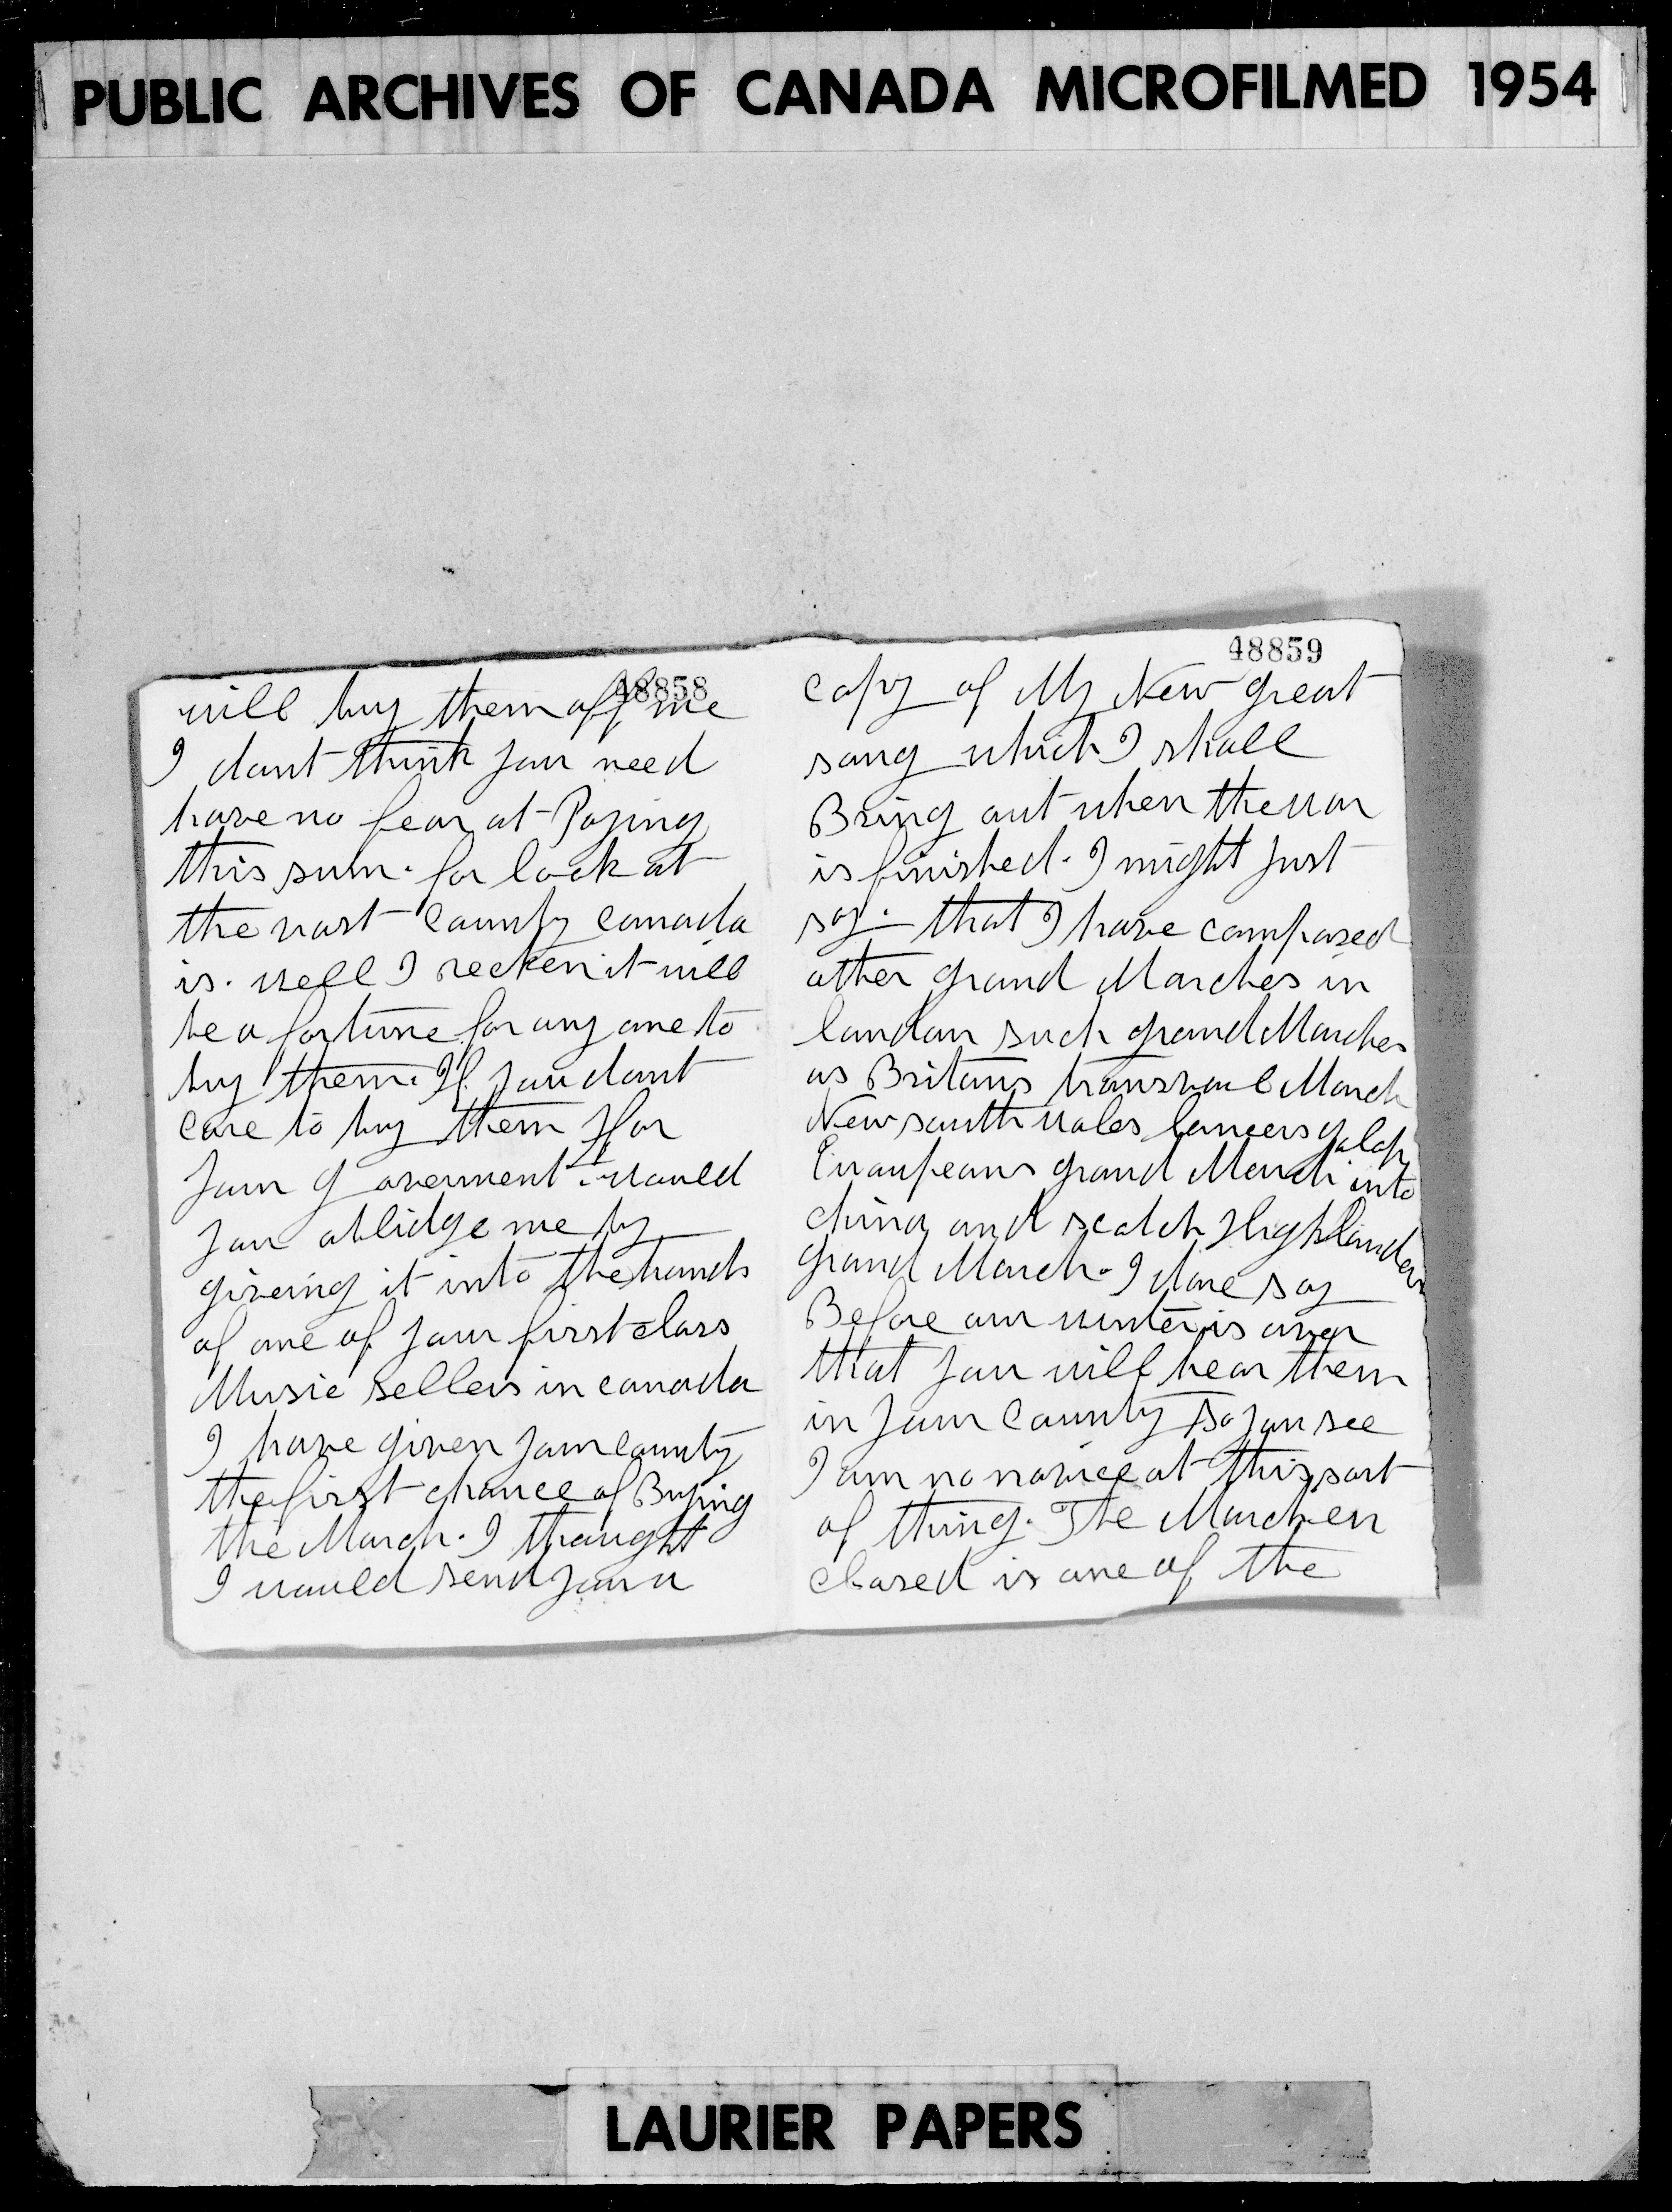 PUBLIC ARCHIVES OF CANADA MICROFILMED 1954
48858
will buy them off me
I dont think you need
have no fear at Paying
this sum. for look at
the vast County Canada
is. well I recken it will
be a fortune for any one to
buy them. If you dont
care to buy them for
your government. would
you oblidge me by
giveing it into the hands
of one of your first class
Music sellers in Canada
I have given your County
the first chance of Buying
the March. I thought
I would send you a
48859
Copy of My New great
song which I shall
Bring out when the war
is finished. I might just
say. that I have composed
other grand Marches in
london such grand Marches
as Britans transvaul March
New south wales lancers galop
Euaupeans grand March into
china and scotch Highlanders
grand March. I dare say
Before our winter is over
that you will hear them
in your County so you see
I am no novice at this sort
of thing. The March en
closed is one of the
LAURIER PAPERS